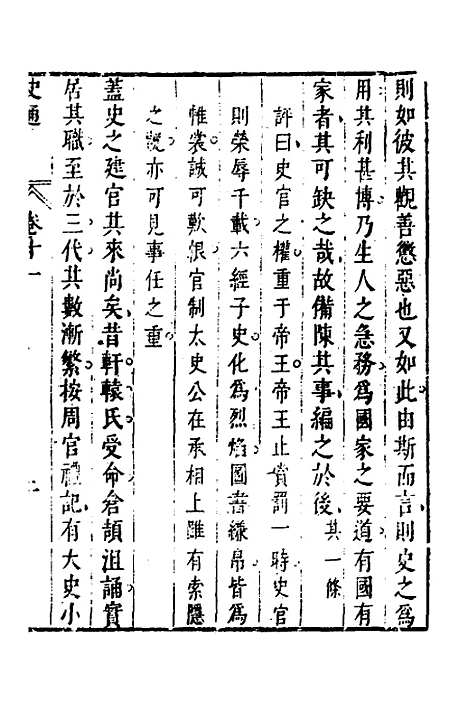 則如彼其觀善懲惡也又如此由斯而言則史之為
用其利甚博乃生人之急務為國家之要道有國有
家者其可缺之哉故備陳其事編之於後其一條
評曰史官之權重于帝王帝王止賞罰一時史官
則榮辱千載六經子史化為烈焰圖書縑帛皆為
帷裳誠可歎恨官制太史公在丞相上雖有索隱
之說亦可見事任之重
蓋史之建官其來尚矣昔軒轅氏受命倉頡沮誦實
居其職至於三代其數漸繁按周官禮記有大史小
史通
卷十一